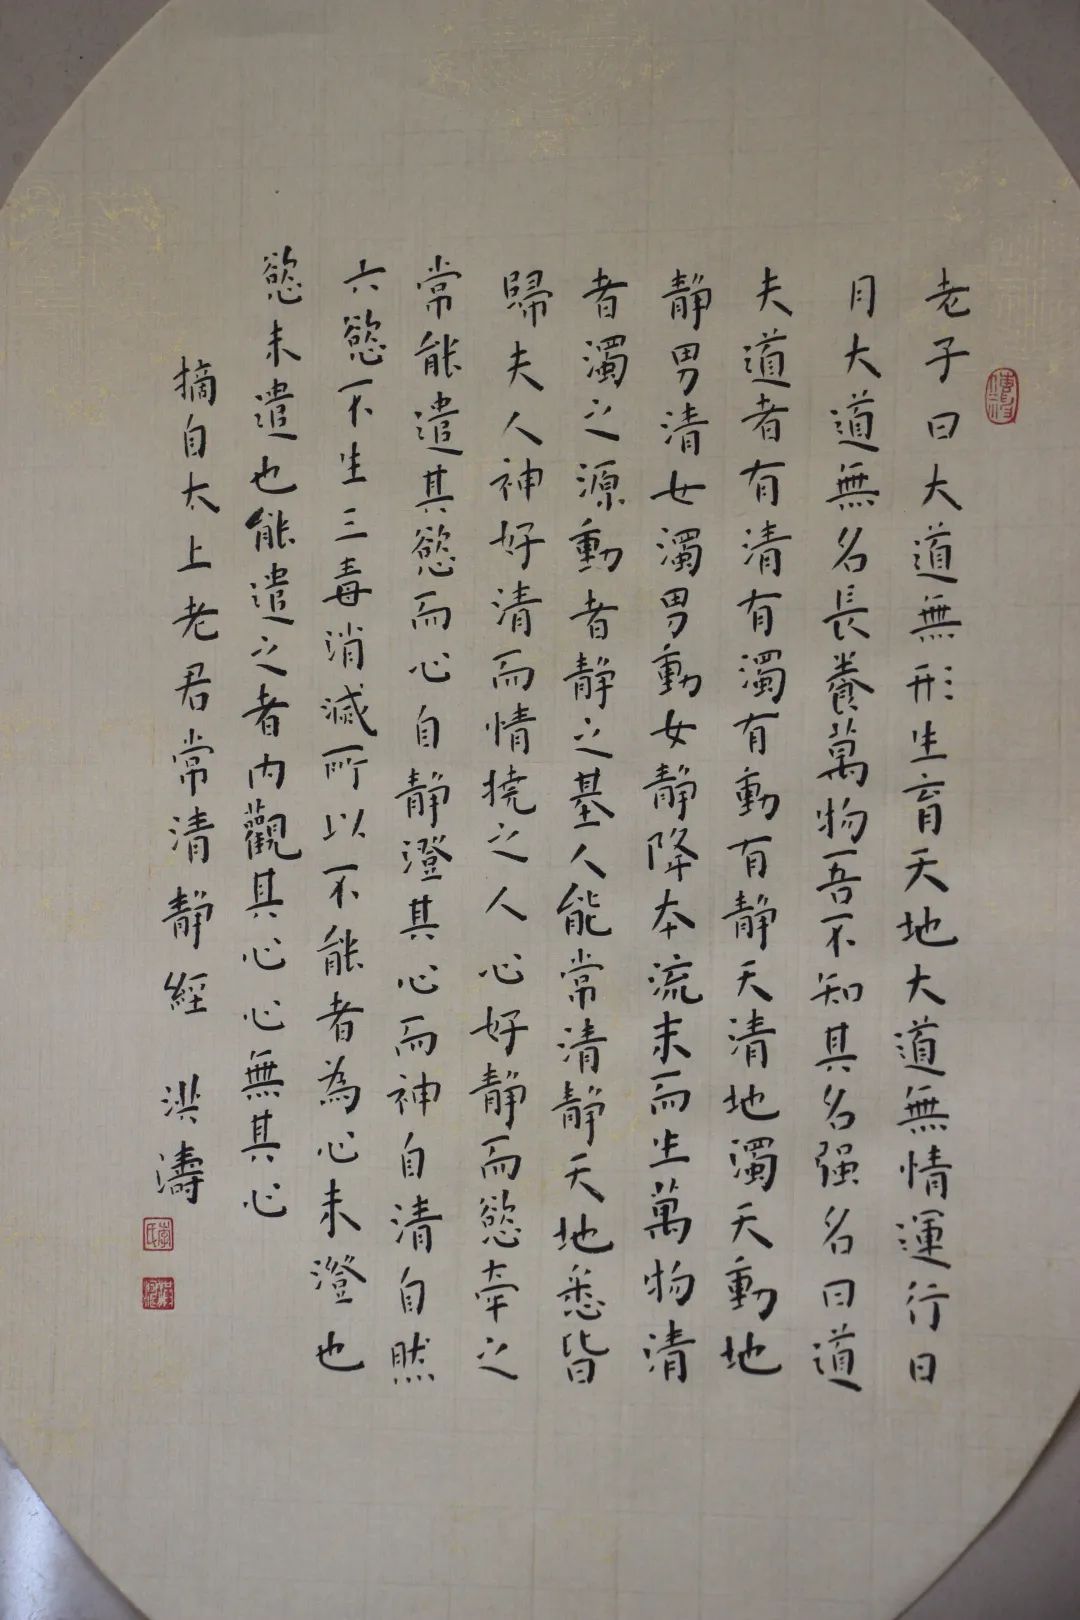 老子曰大道無形生育天地大道無情運行日
月大道無名長養萬物吾不知其名强名曰道
夫道者有清有濁有動有静天清地濁天動地
静男清女濁男動女静降本流末而生萬物清
者濁之源動者静之基人能常清静天地悉皆
歸夫人神好清而情撓之人心好静而慾牽之
常能遣其慾而心自静澄其心而神自清自然
六慾不生三毒消滅所以不能者為心未澄也
慾未遣也能遣之者内觀其心心無其心
摘自太上老君常清静經 洪濤